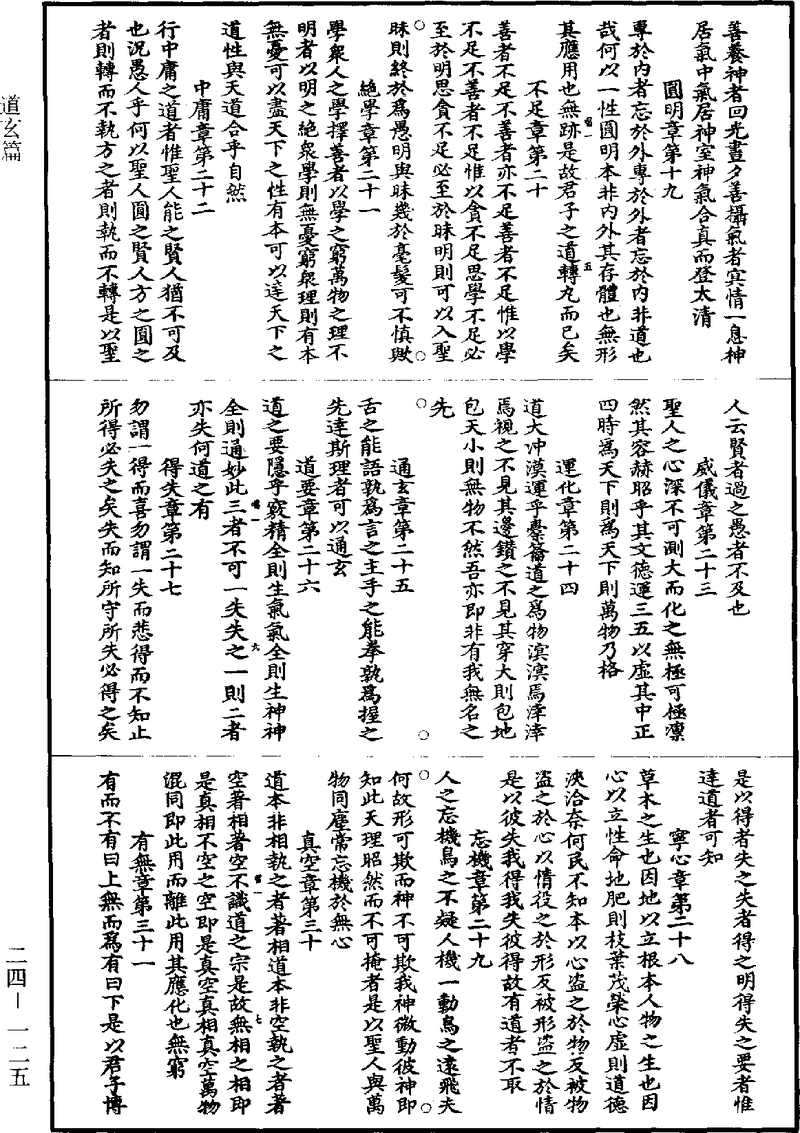 道玄篇
善養神者回光晝夕善攝氣者冥情一息神
居氣中氣居神室神氣合真而登太清
圓明章第十九
專於內者忘於外專於外者忘於內非道也
哉何以一性圓明本非內外其存體也無形
其應用也無跡是故君子之道轉丸而已矣
不足章第二十
善者不足不善者亦不足善者不足惟以學
不足不善者不足惟以貪不足思學不足必
至於明思貪不足必至於昧明則可以入聖
昧則終於為愚明與昧幾於毫髮可不慎歟
絶學章第二十一
學衆人之學擇善者以學之窮萬物之理不
明者以明之絶衆學則無憂窮衆理則有本
無憂可以盡天下之性有本可以逹天下之
道性與天道合乎自然
中庸章第二十二
行中庸之道者惟聖人能之賢人猶不可及
也況愚人乎何以聖人圓之賢人方之圓之
者則轉而不執方之者則執而不轉是以聖
人云賢者過之愚者不及也
威儀章第二十三
聖人之心深不可測大而化之無極可極凛
然其容赫昭乎其文德運三五以虛其中正
四時為天下則為天下則萬物乃格
運化章第二十四
道大冲漠運乎橐籥道之為物溟溟焉涬涬
焉視之不見其邊鑚之不見其穿大則包地
包天小則無物不然吾亦即非有我無名之
先
通玄章第二十五
舌之能語孰為言之主手之能拳孰為握之
先達斯理者可以通玄
道要章第二十六
道之要隱乎竅精全則生氣氣全則生神神
全則通妙此三者不可一失失之一則二者
亦失何道之有
得失章第二十七
勿謂一得而喜勿謂一失而悲得而不知止
所得必失之矣失而知所守所失必得之矣
是以得者失之失者得之明得失之要者惟
達道者可知
寧心章第二十八
草木之生也因地以立根本人物之生也因
心以立性命地肥則枝葉茂榮心虛則道德
浹洽奈何民不知本以心盗之於物反被物
盗之於心以情役之於形反被形盗之於情
是以彼失我得我失彼得故有道者不取
忘機章第二十九
人之忘機鳥之不疑人機一動鳥之遠飛夫
何故形可欺而神不可欺我神微動彼神即
知此天理昭然而不可掩者是以聖人與萬
物同塵常忘機於無心
真空章第三十
道本非相執之者著相道本非空執之者著
空著相著空不識道之宗是故無相之相即
是真相不空之空即是真空真相真空萬物
混同即此用而離此用其應化也無窮
有無章第三十一
有而不有曰上無而為有曰下是以君子博
二四－一二五